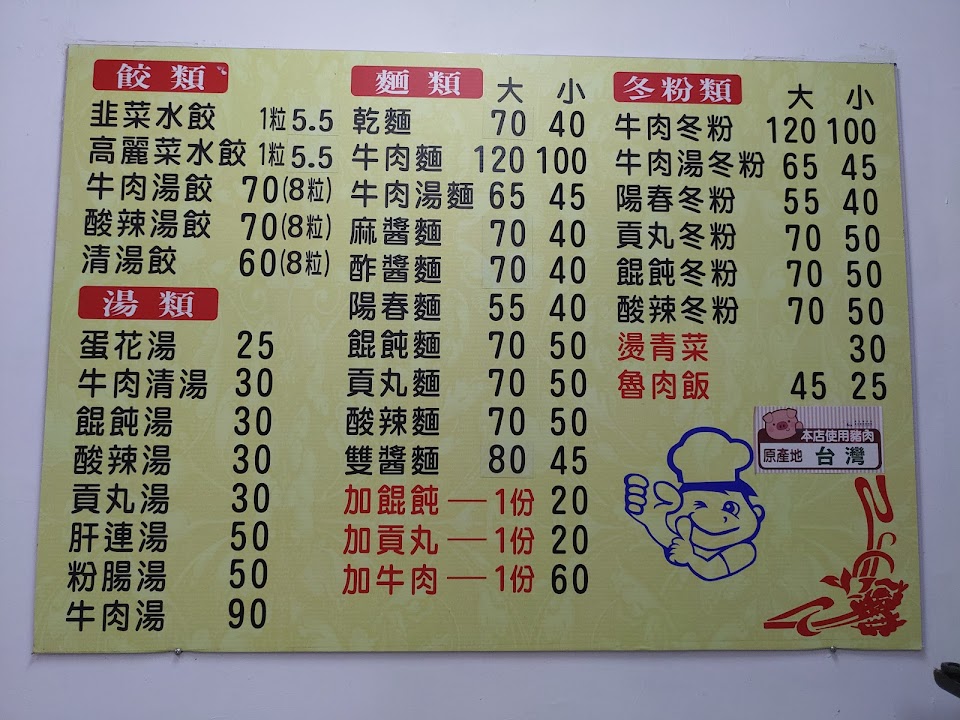 餃類
韭菜水餃 1粒5.5
高麗菜水餃 1粒5.5
牛肉湯餃 70(8粒)
酸辣湯餃 70(8粒)
清湯餃 60(8粒)
湯類
蛋花湯 25
牛肉清湯 30
餛飩湯 30
酸辣湯 30
貢丸湯 30
肝連湯 50
粉腸湯 50
牛肉湯 90
麵類 大 小
乾麵 70 40
牛肉麵 120 100
牛肉湯麵 65 45
麻醬麵 70 40
酢醬麵 70 40
陽春麵 55 40
餛飩麵 70 50
貢丸麵 70 50
酸辣麵 70 50
雙醬麵 80 45
加餛飩—1份 20
加貢丸—1份 20
加牛肉—1份 60
冬粉類 大 小
牛肉冬粉 120 100
牛肉湯冬粉 65 45
陽春冬粉 55 40
貢丸冬粉 70 50
餛飩冬粉 70 50
酸辣冬粉 70 50
燙青菜 30
魯肉飯 45 25
本店使用豬肉
原產地 台灣